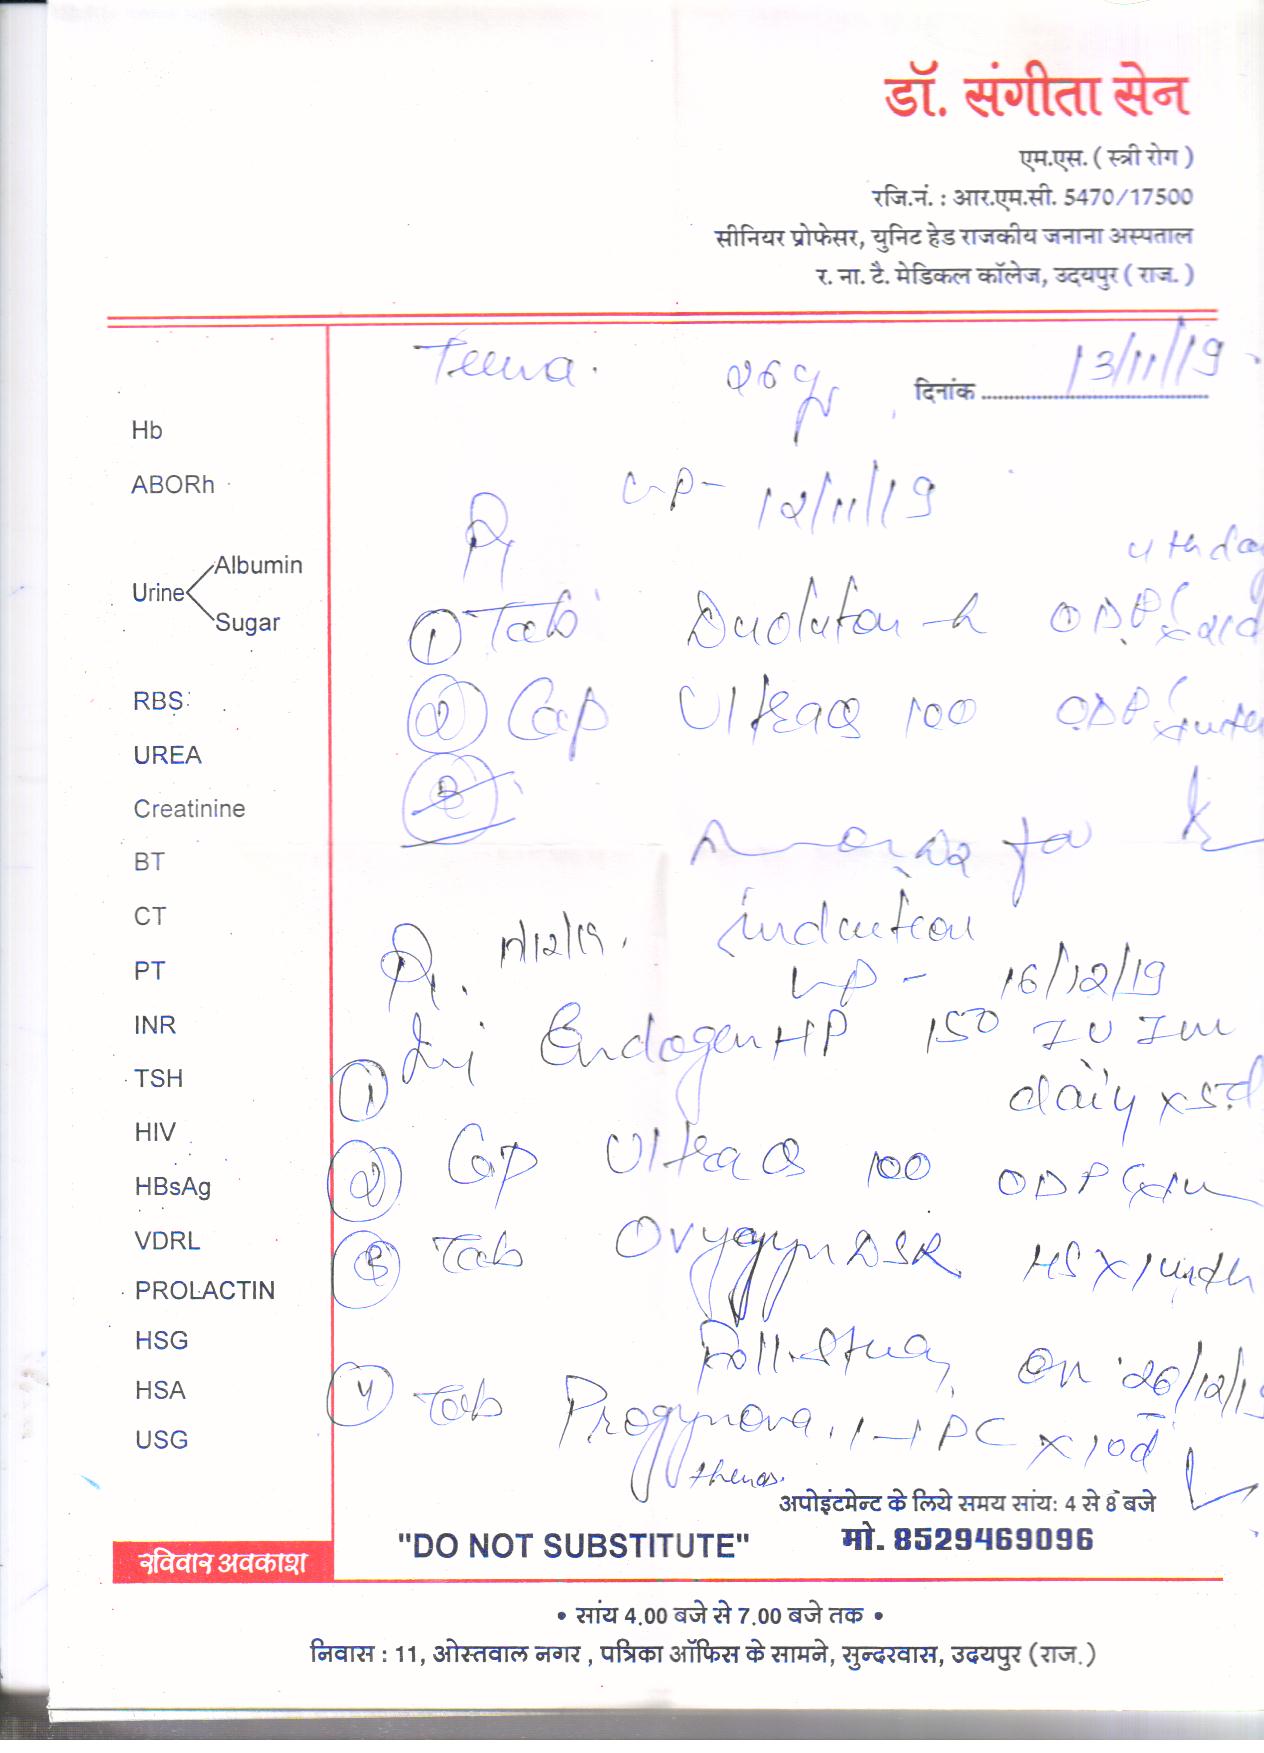 डॉ. संगीता सेन
एम.एस. ( स्त्री रोग )
रजि.नं. : आर.एम.सी. 5470/17500
सीनियर प्रोफेसर, युनिट हेड राजकीय जनाना अस्पताल
र. ना. टै. मेडिकल कॉलेज, उदयपुर ( राज. )
Teena. 26 yr दिनांक 13/11/19
Hb
ABORh
LMP- 12/11/19
Rx
4th day
Urine Albumin
Sugar
① Tab Duoluton-L ODPC x 21d
② Cap Ultra Q 100 ODPC
RBS
UREA
Creatinine
BT
CT
PT
INR
TSH
HIV
HBsAg
VDRL
PROLACTIN
HSG
HSA
USG
for
induction
Rx /12/19. LMP - 16/12/19
① Inj Endogen HP 150 IU IM
daily x 5d
② Cap Ultra Q 100 ODPC
③ Tab Ovygyn DSR HS x 1 month
Foll. Study on 26/12/19
④ Tab Progynova 1-1 PC x 10d
अपोइंटमेन्ट के लिये समय सांय: 4 से 8 बजे
"DO NOT SUBSTITUTE" मो. 8529469096
रविवार अवकाश
• सांय 4.00 बजे से 7.00 बजे तक •
निवास : 11, ओस्तवाल नगर , पत्रिका ऑफिस के सामने, सुन्दरवास, उदयपुर (राज.)